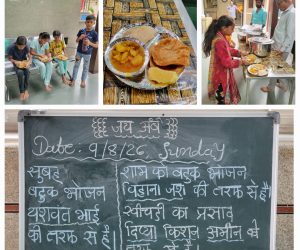 जय अंबे
Date: 9/8/26, Sunday
सुबह
बटुक भोजन
यशवंत भाई
की तरफ से है।
शाम को बटुक भोजन
की तरफ से है।
खीचडी का प्रसाद
दिव्या किशन